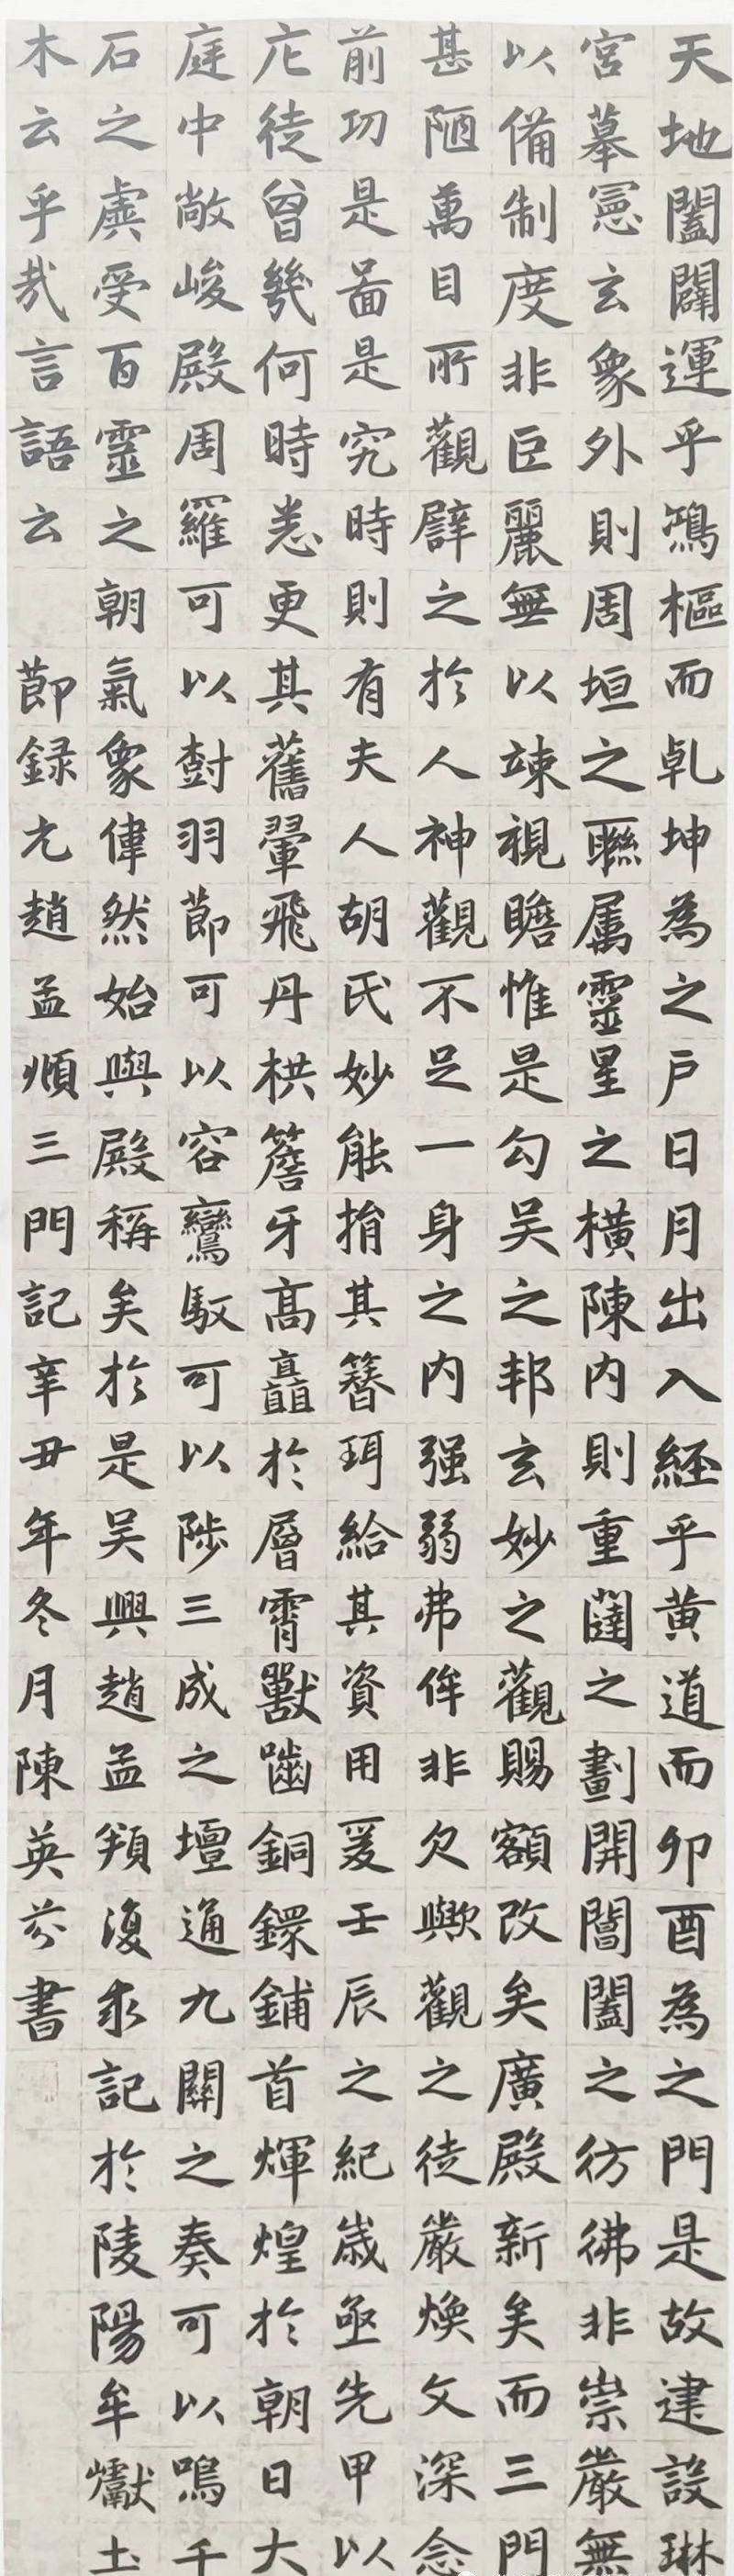 天地闔闢運乎鴻樞而乹坤為之戶日月出入經乎黃道而卯酉為之門是故建設琳
宮摹憲玄象外則周垣之聮属靈星之橫陳內則重闥之劃開閶闔之彷彿非崇嚴無
以備制度非巨麗無以竦視瞻惟是勾吴之邦玄妙之觀賜額改矣廣殿新矣而三門
甚陋萬目所觀辟之於人神觀不足一身之内强弱弗侔非欠歟觀之徒嚴煥文深念
前功是啚是究時則有夫人胡氏妙能捐其簪珥給其資用爰壬辰之紀歲亟先甲以
庀徒曾幾何時悉更其舊翬飛丹栱簷牙高矗於層霄獸嚙銅鐶鋪首輝煌於朝日大
庭中敞峻殿周羅可以尌羽節可以容鸞馭可以陟三成之壇通九關之奏可以鳴千
石之虡受百靈之朝氣象偉然始與殿稱矣於是吴興趙孟頫復求記於陵陽牟巘土
木云乎㢤言語云 節録元趙孟順三門記辛丑年冬月陳英芬書